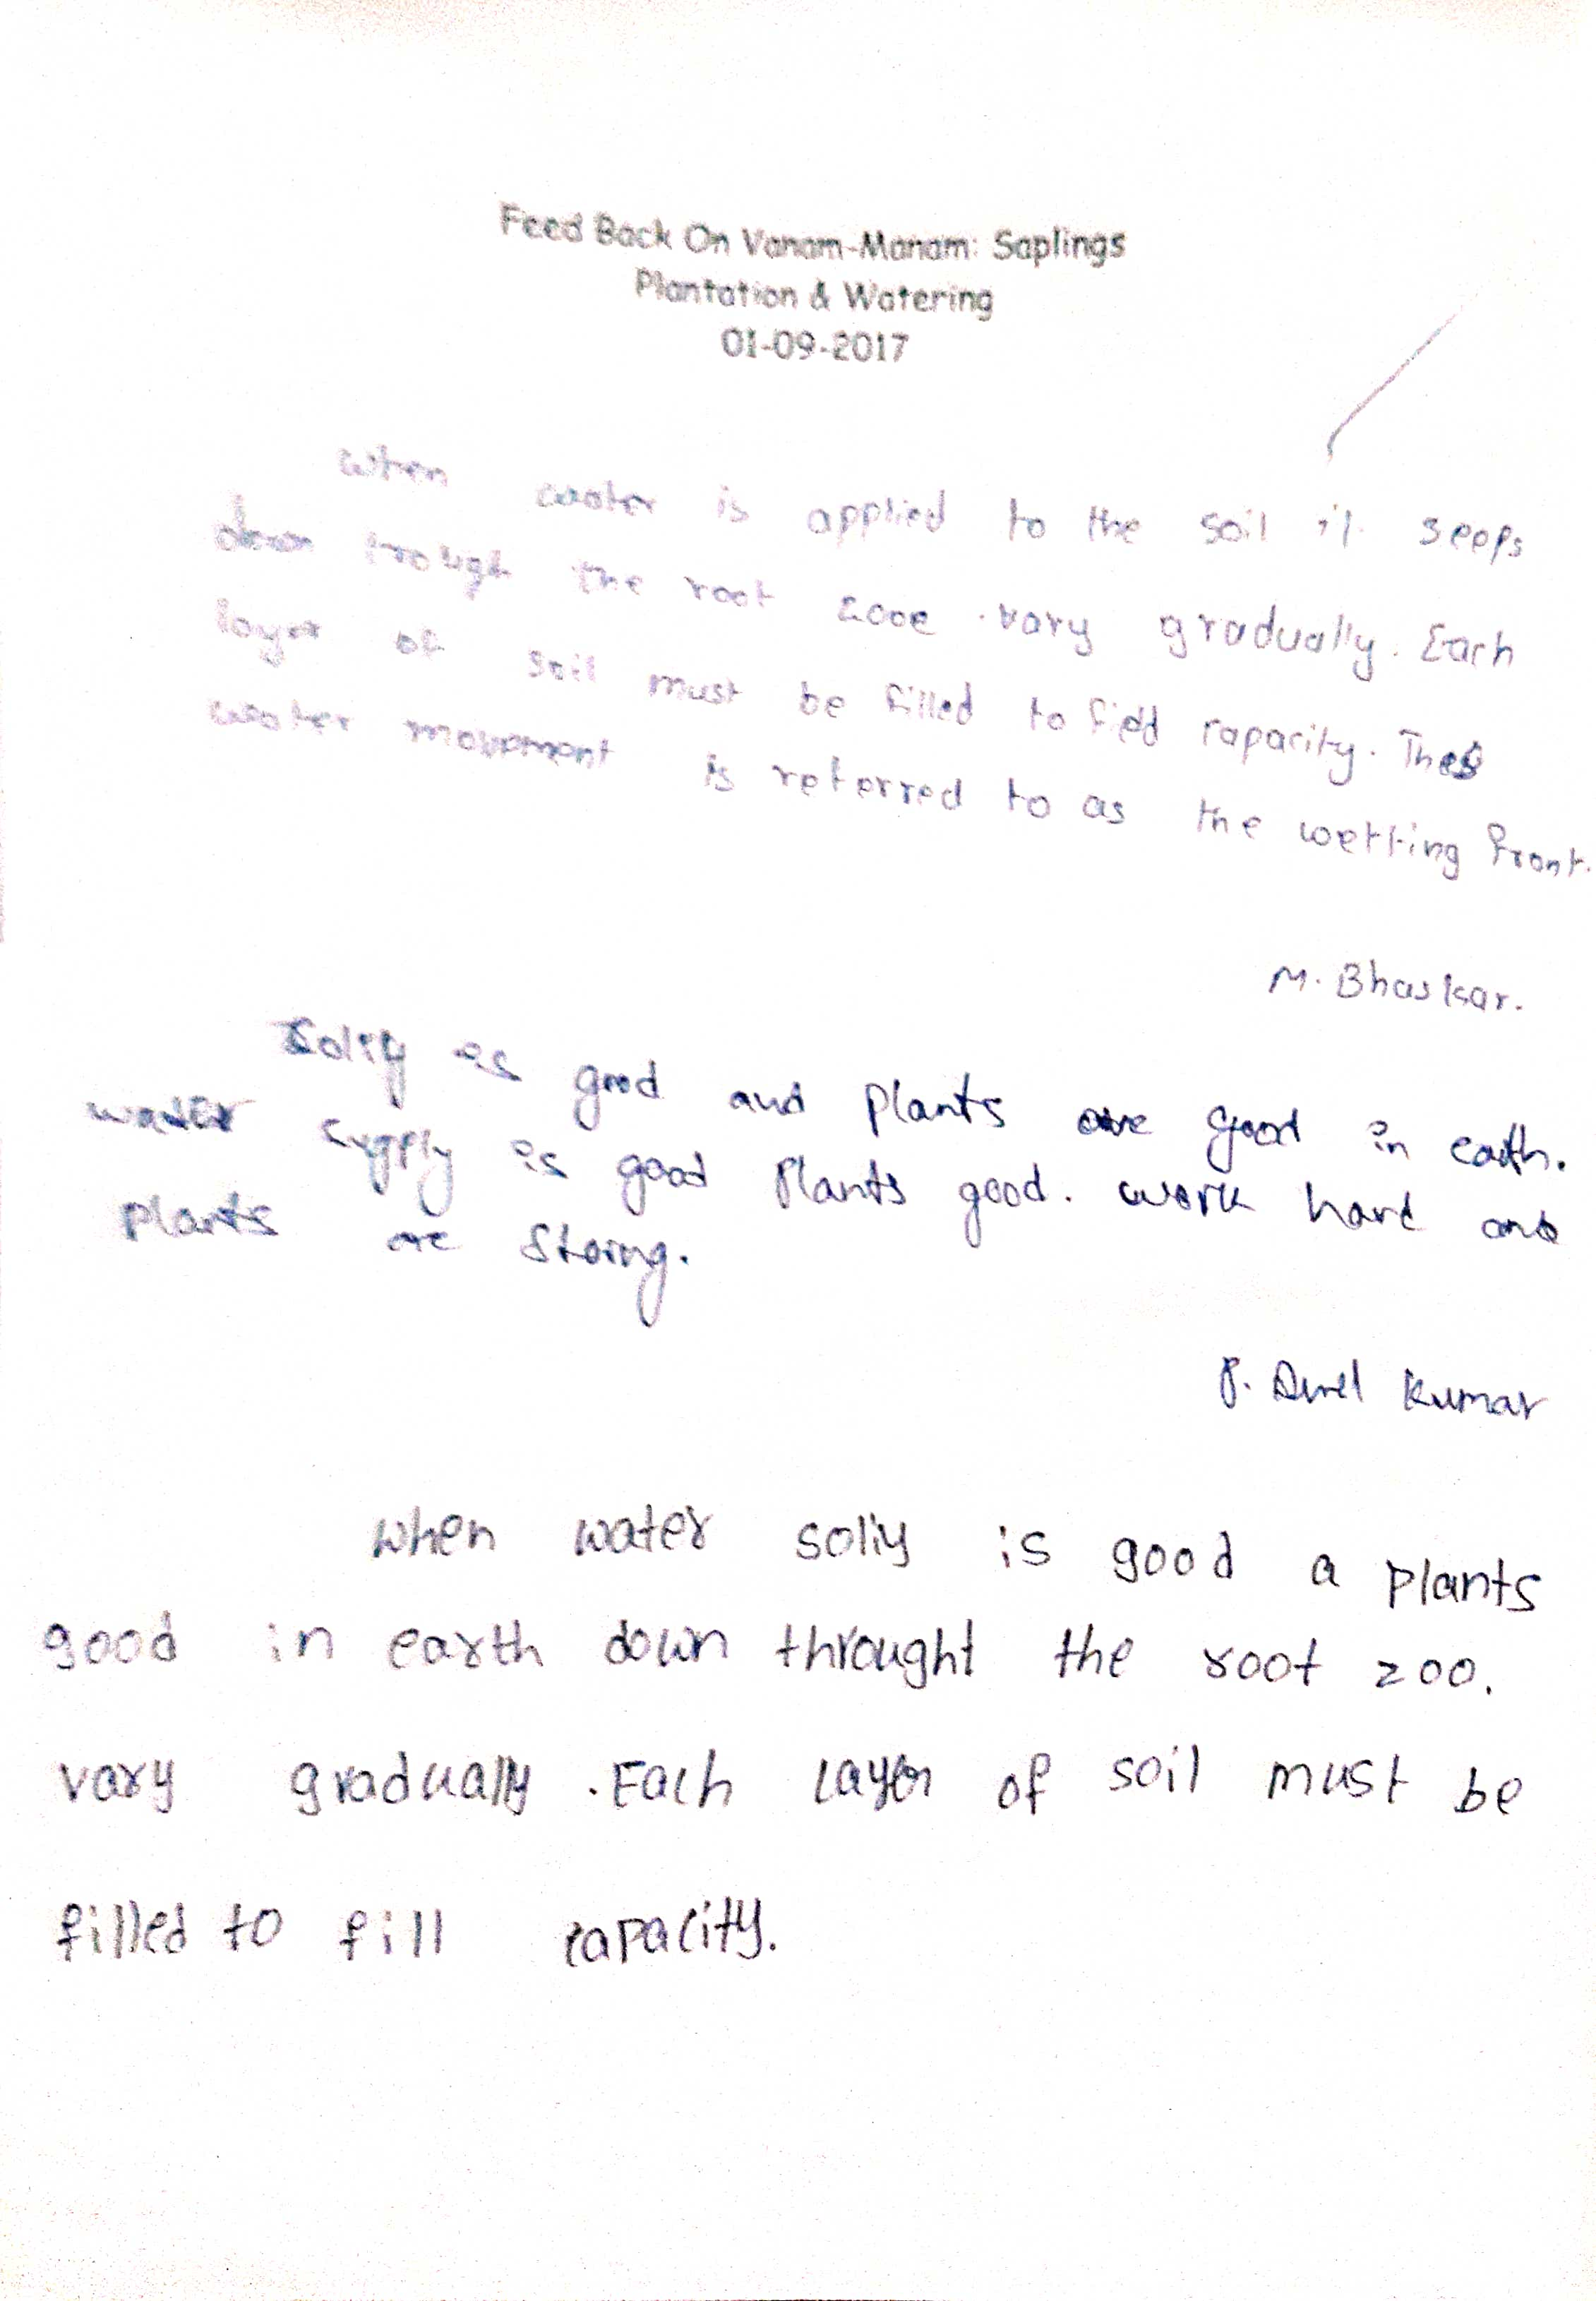 Feed Back On Vanam-Manam: Saplings
Plantation & Watering
01-09-2017
When water is applied to the soil it seeps
down trough the root zooe vary gradually. Each
layer of soil must be filled to field capacity. Thes
water movement is referred to as the wetting front.
M. Bhaskar.
Soliy is good and plants are good in earth.
water supply is good plants good. work hard and
plants are Storng.
P. Kumar
When water soliy is good a plants
good in earth down throught the root zoo.
vary gradually. Each layer of soil must be
filled to fill capacity.